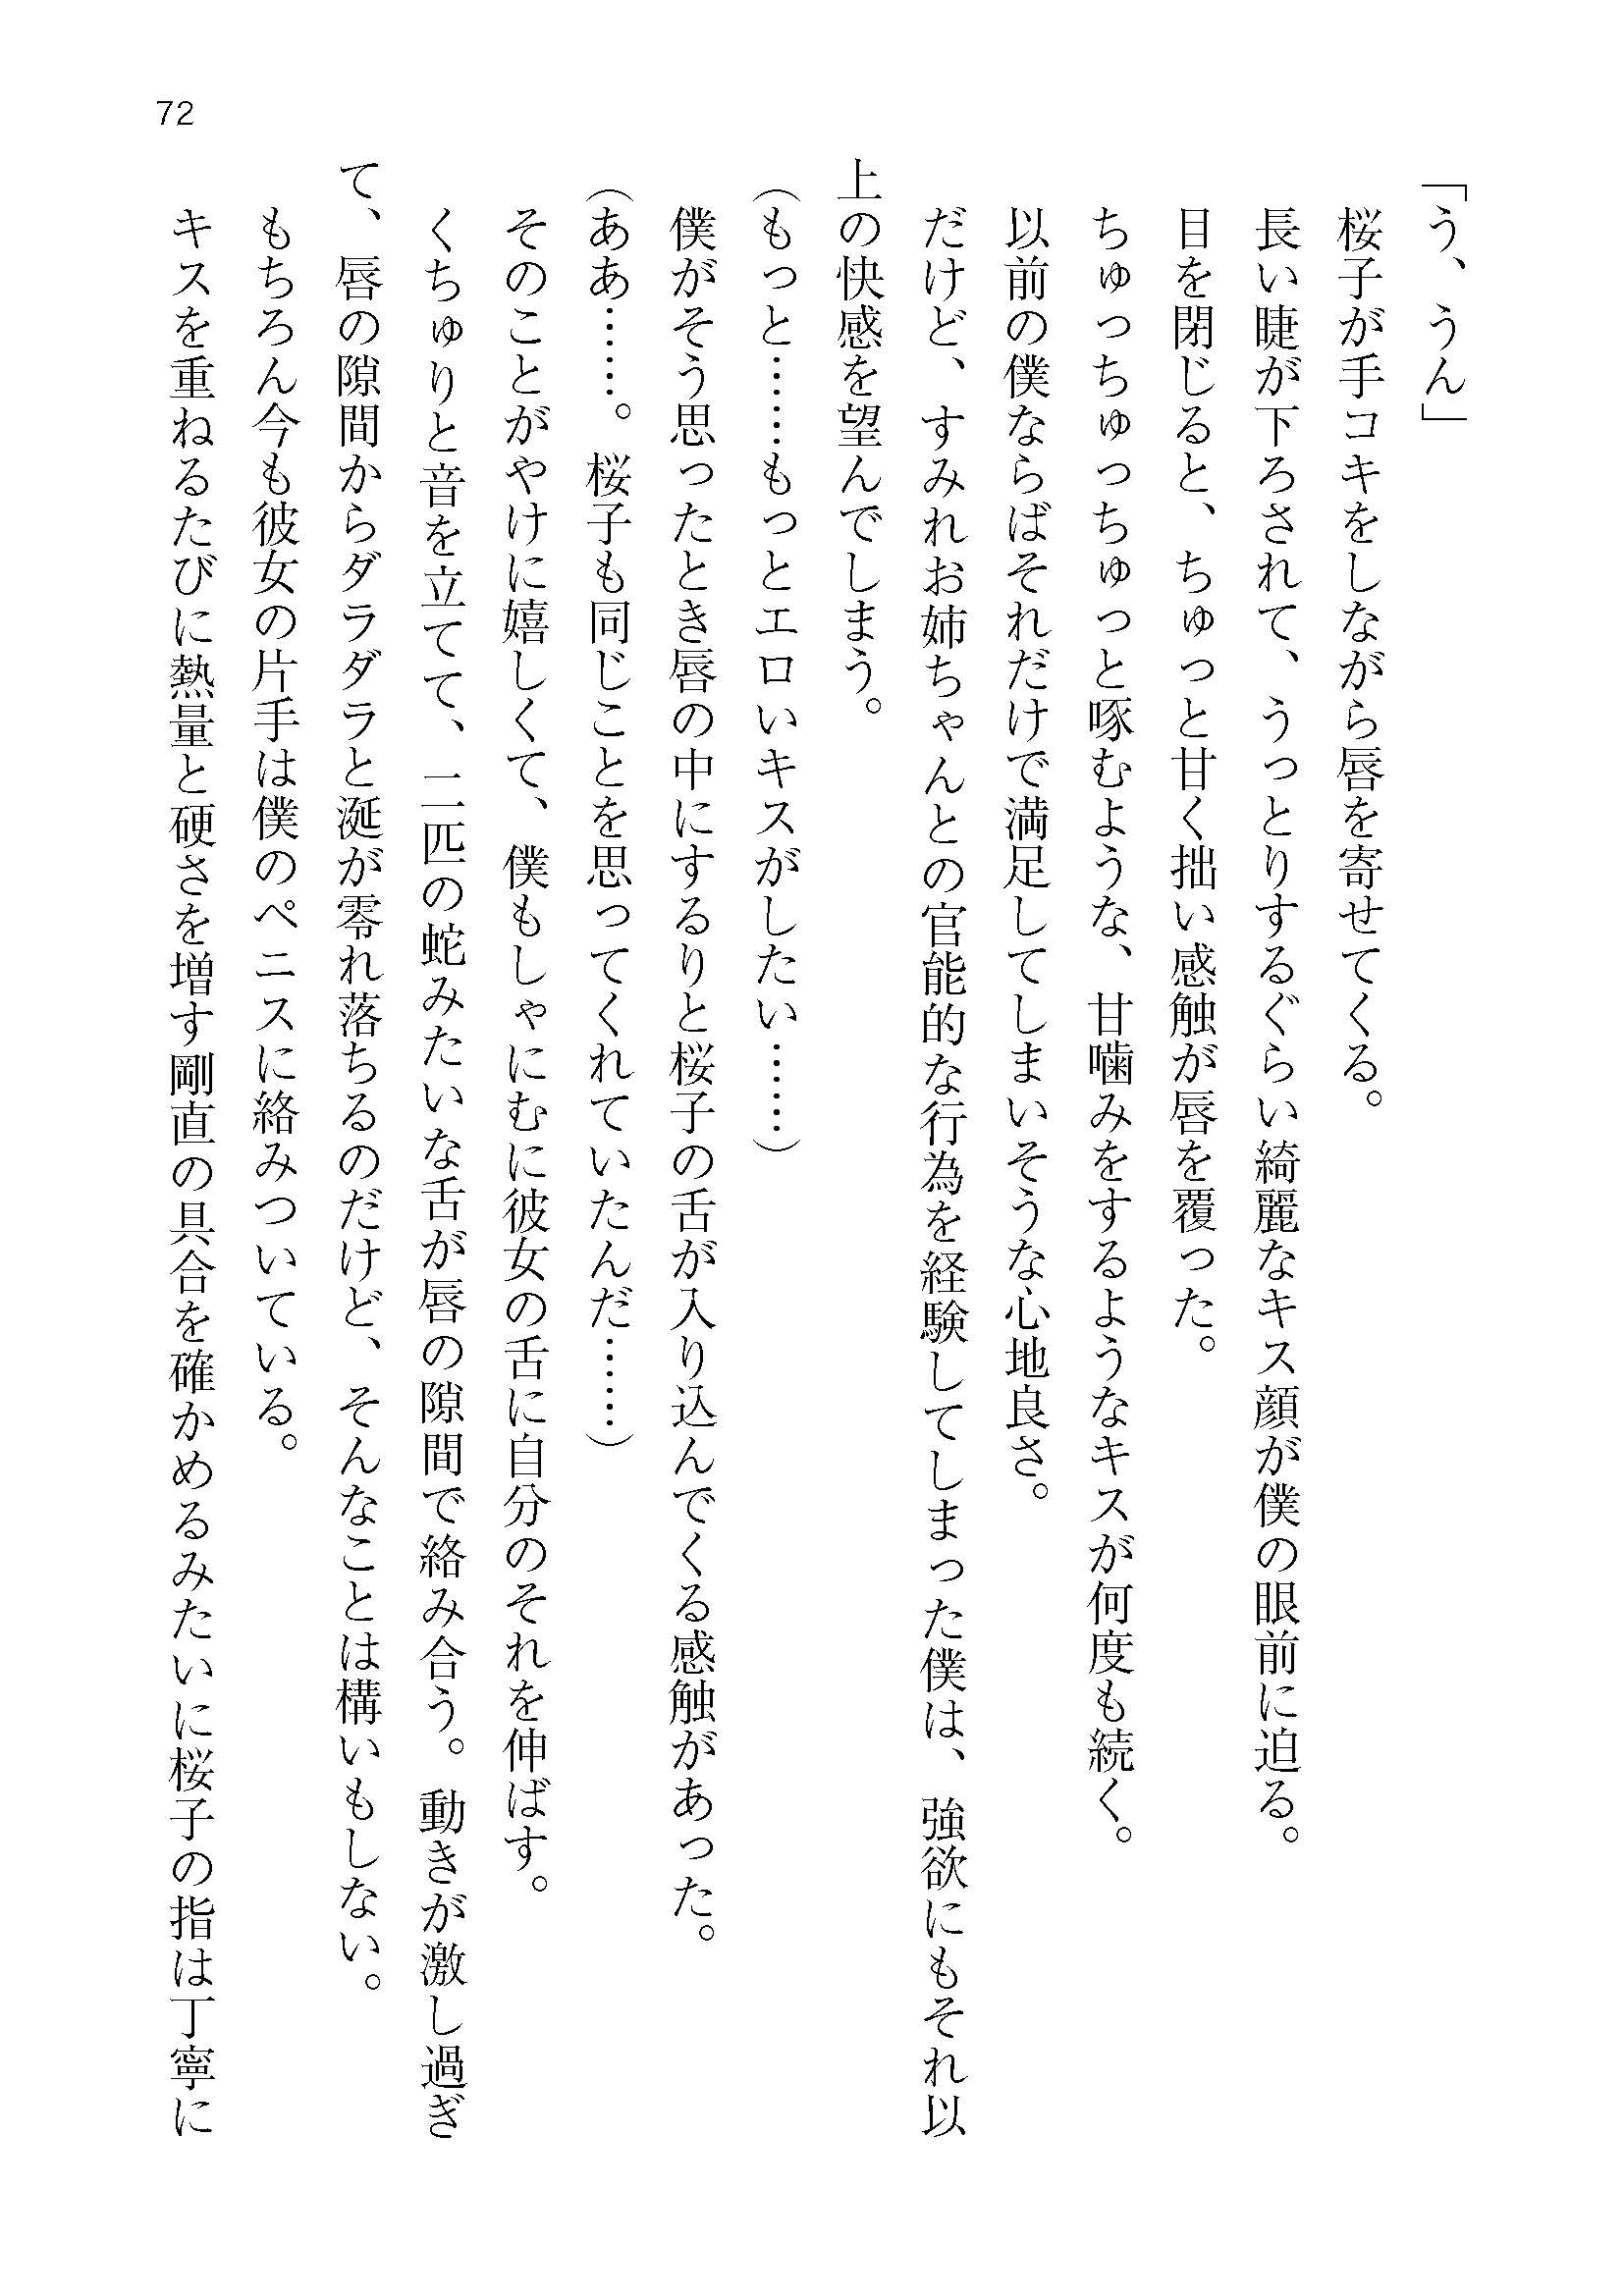 72
「う、うん」
　桜子が手コキをしながら唇を寄せてくる。
　長い睫が下ろされて、うっとりするぐらい綺麗なキス顔が僕の眼前に迫る。
　目を閉じると、ちゅっと甘く拙い感触が唇を覆った。
　ちゅっちゅっちゅっと啄むような、甘噛みをするようなキスが何度も続く。
　以前の僕ならばそれだけで満足してしまいそうな心地良さ。
　だけど、すみれお姉ちゃんとの官能的な行為を経験してしまった僕は、強欲にもそれ以
上の快感を望んでしまう。
（もっと……もっとエロいキスがしたい……）
　僕がそう思ったとき唇の中にするりと桜子の舌が入り込んでくる感触があった。
（ああ……。桜子も同じことを思ってくれていたんだ……）
　そのことがやけに嬉しくて、僕もしゃにむに彼女の舌に自分のそれを伸ばす。
　くちゅりと音を立てて、二匹の蛇みたいな舌が唇の隙間で絡み合う。動きが激し過ぎ
て、唇の隙間からダラダラと涎が零れ落ちるのだけど、そんなことは構いもしない。
　もちろん今も彼女の片手は僕のペニスに絡みついている。
　キスを重ねるたびに熱量と硬さを増す剛直の具合を確かめるみたいに桜子の指は丁寧に